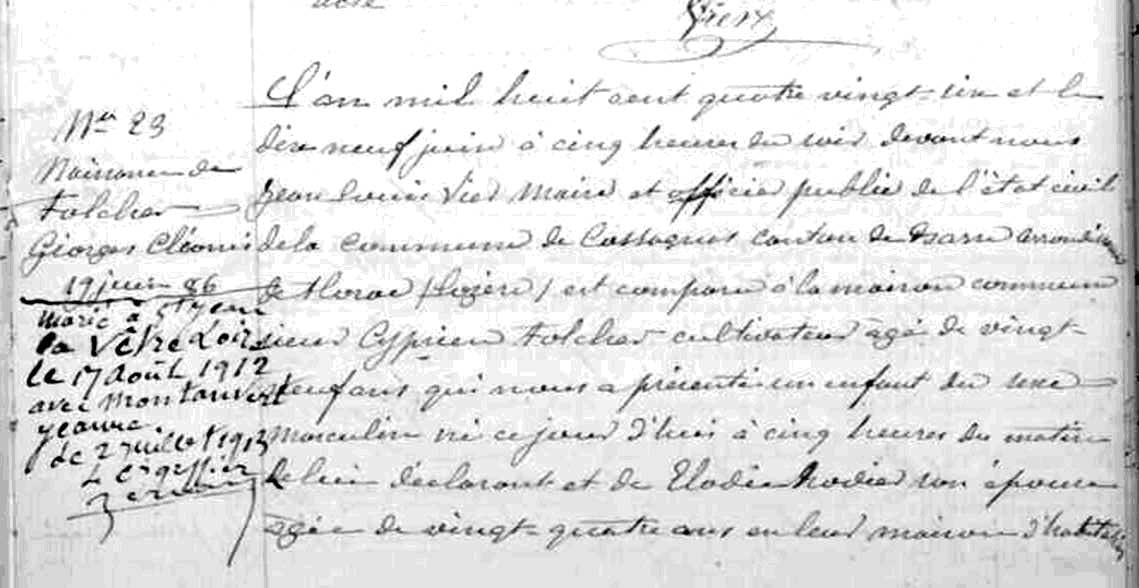 acte
Viers
Nº 23
Naissance de
Folcher
Géorges Cléonis
19 juin 86
Marié à St Jean
la Vêtre Loire
le 17 Août 1912
avec Montauvert
Jeanne.
Le 2 Juillet 1913
Le Greffier
L'an mil huit cent quatre vingt-six et le
dix neuf juin à cinq heures du soir devant nous
Jean Louis Vier Maire et officier public de l'état civil
de la commune de Cassagnas canton de Barre arrondis
de Florac (Lozère) est comparu à la maison commune
sieur Cyprien Folcher cultivateur âgé de vingt
neuf ans qui nous a présenté un enfant du sexe
masculin né ce jour d'hui à cinq heures du matin
de lui déclarant et de Elodie Rodier son épouse
agée de vingt-quatre ans en leur maison d'habitation